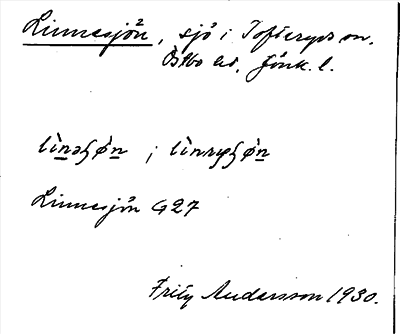 Linnesjön, sjö i Tofteryds sn.
Östbo hd. Jönk. l.
Linnesjön G27
Fritz Andersson 1930.